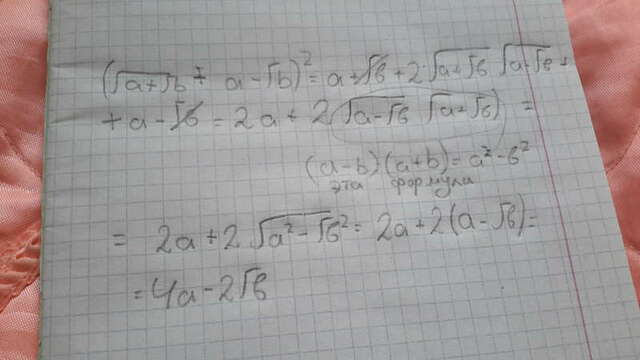 (√a+√b + a-√b)² = a+√b + 2·√a+√b √a-√b +
+ a-√b = 2a + 2(√a-√b √a+√b) =
(a-b)(a+b) = a²-b²
эта формула
= 2a + 2√a²-√b² = 2a + 2(a-√b) =
= 4a - 2√b